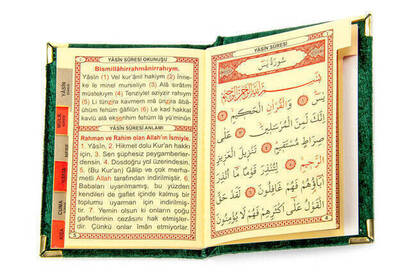 YÂSÎN SÛRESİ OKUNUŞU
Bismillâhirrahmânirrahıym.
Yâsîn (1) Vel kur'ânil hakiym (2) İnne-
ke le minel murseliyn (3) Alâ sırâtım
müstekıym (4) Tenziylel aziyzir rahıym
(5) Li tünzira kavmem mâ ünzira âbâ-
ühüm fehüm ğâfilûn (6) Le kad hakkal
kavlü alâ ekserihim fehüm lâ yü'minûn
YÂSÎN SÛRESİ ANLAMI
Rahman ve Rahim olan Allah'ın İsmiyle.
1. Yâsîn, 2. Hikmet dolu Kur'an hakkı
için, 3. Sen şüphesiz peygamberler-
densin. 4. Dosdoğru yol üzerindesin.
5. (Bu Kur'an) Gâlip ve çok merha-
metli Allah tarafından indirilmiştir. 6.
Babaları uyarılmamış, bu yüzden
kendileri de gaflet içinde kalmış bir
toplumu uyarman için indirilmiş-
tir. 7. Yemin olsun ki onların çoğu
gafletlerinin cezasını hak etmişler-
dir. Çünkü onlar iman etmiyorlar.
YÂSÎN
MÜLK
NEBE
CUMA
YÂSÎN SÛRESİ
سُورَةُ يٰسٓ
بِسْمِ اللّٰهِ الرَّحْمٰنِ الرَّحِيمِ
يٰسٓ وَالْقُرْاٰنِ الْحَكِيمِ
اِنَّكَ لَمِنَ الْمُرْسَلِينَ عَلٰى
صِرَاطٍ مُسْتَقِيمٍ تَنْزِيلَ الْعَزِيزِ
الرَّحِيمِ لِتُنْذِرَ قَوْمًا مَٓا اُنْذِرَ
اٰبَٓاؤُهُمْ فَهُمْ غَافِلُونَ لَقَدْ حَقَّ
الْقَوْلُ عَلٰٓى اَكْثَرِهِمْ فَهُمْ لَا يُؤْمِنُونَ